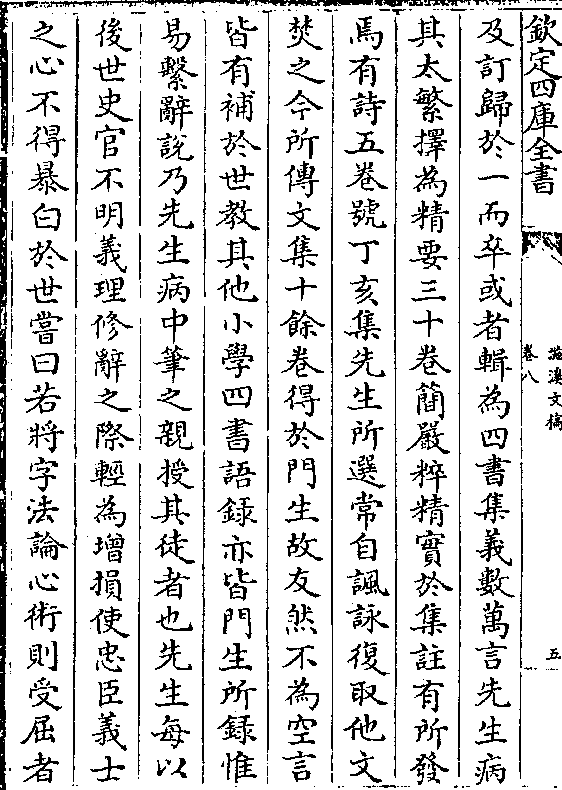 欽定四庫全書
滋溪文稿
卷八
五
及訂歸於一而卒或者輯為四書集義數萬言先生病
其太繁擇為精要三十卷蕳嚴粹精實於集註有所發
焉有詩五卷號丁亥集先生所選常自諷詠復取他文
焚之今所傳文集十餘卷得於門生故友然不為空言
皆有補於世教其他小學四書語録亦皆門生所録惟
易繫辭說乃先生病中筆之親授其徒者也先生每以
後世史官不明義理修辭之際輕為增損使忠臣義士
之心不得暴白於世嘗曰若將字法論心術則受屈者